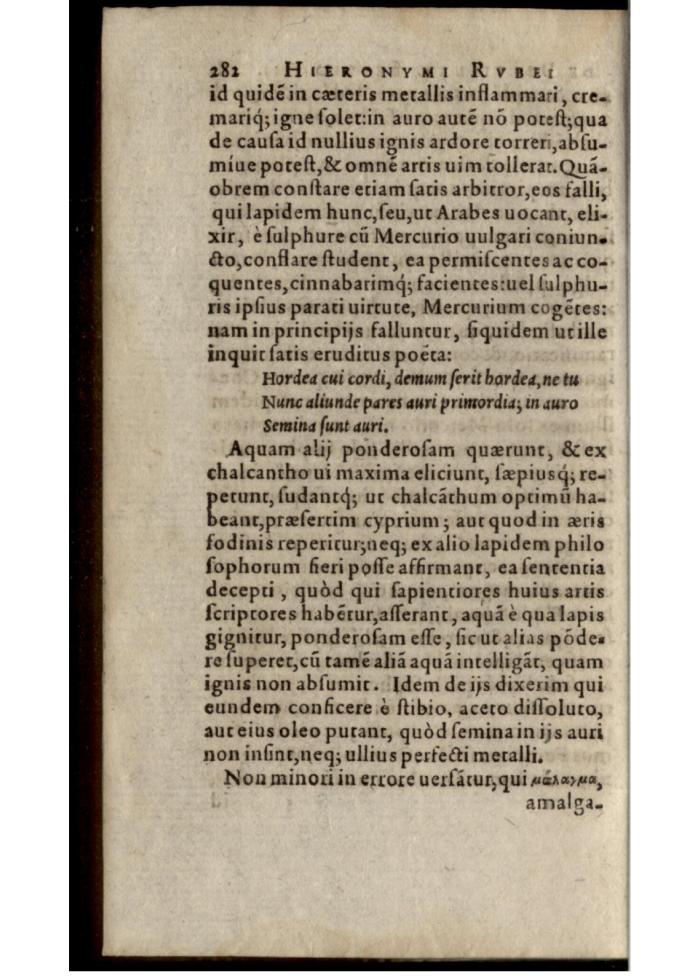 282 HIERONYMI RVBEI
id quidē in cæteris metallis inflammari, cre-
mariq́; igne ſolet: in auro autē nō poteſt; qua
de cauſa id nullius ignis ardore torreri, abſu-
míue poteſt, & omnē artis uim tollerat. Quā-
obrem conſtare etiam ſatis arbitror, eos falli,
qui lapidem hunc, ſeu, ut Arabes uocant, eli-
xir, è ſulphure cū Mercurio uulgari coniun-
cto, conflare ſtudent, ea permiſcentes ac co-
quentes, cinnabarimq́; facientes: uel ſulphu-
ris ipſius parati uirtute, Mercurium cogētes:
nam in principijs falluntur, ſiquidem ut ille
inquit ſatis eruditus poëta:
Hordea cui cordi, demum ſerit hordea, ne tu
Nunc aliunde pares auri primordia; in auro
Semina ſunt auri.
Aquam alij ponderoſam quærunt, & ex
chalcantho ui maxima eliciunt, ſæpiusq́; re-
petunt, ſudantq́; ut chalcāthum optimū ha-
beant, præſertim cyprium; aut quod in æris
fodinis reperitur; neq; ex alio lapidem philo
ſophorum fieri poſſe affirmant, ea ſententia
decepti, quòd qui ſapientiores huius artis
ſcriptores habētur, aſſerant, aquā è qua lapis
gignitur, ponderoſam eſſe, ſic ut alias pōde-
re ſuperet, cū tamē aliā aquā intelligāt, quam
ignis non abſumit. Idem de ijs dixerim qui
eundem conficere è ſtibio, aceto diſſoluto,
aut eius oleo putant, quòd ſemina in ijs auri
non inſint, neq; ullius perfecti metalli.
Non minori in errore uerſātur, qui μάλαγμα,
amalga-